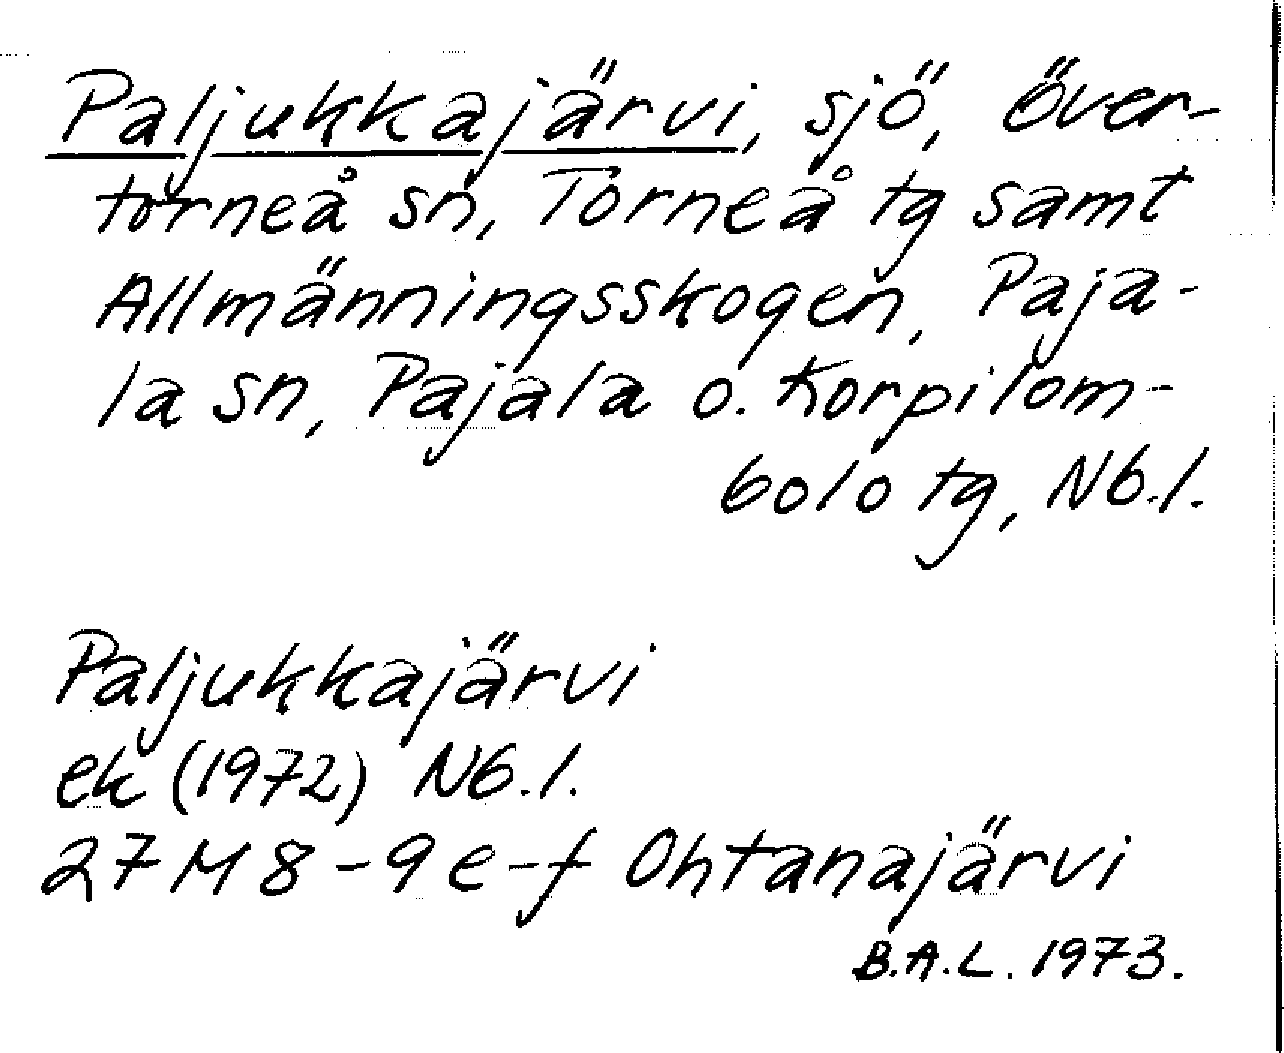 Paljukkajärvi, sjö, Över-
torneå sn, Torneå tg samt
Allmänningsskogen, Paja-
la sn, Pajala o. Korpilom-
bolo tg, Nb.l.
Paljukkajärvi
ek (1972) Nb.l.
27 M 8-9 e-f Ohtanajärvi
B.A.L. 1973.